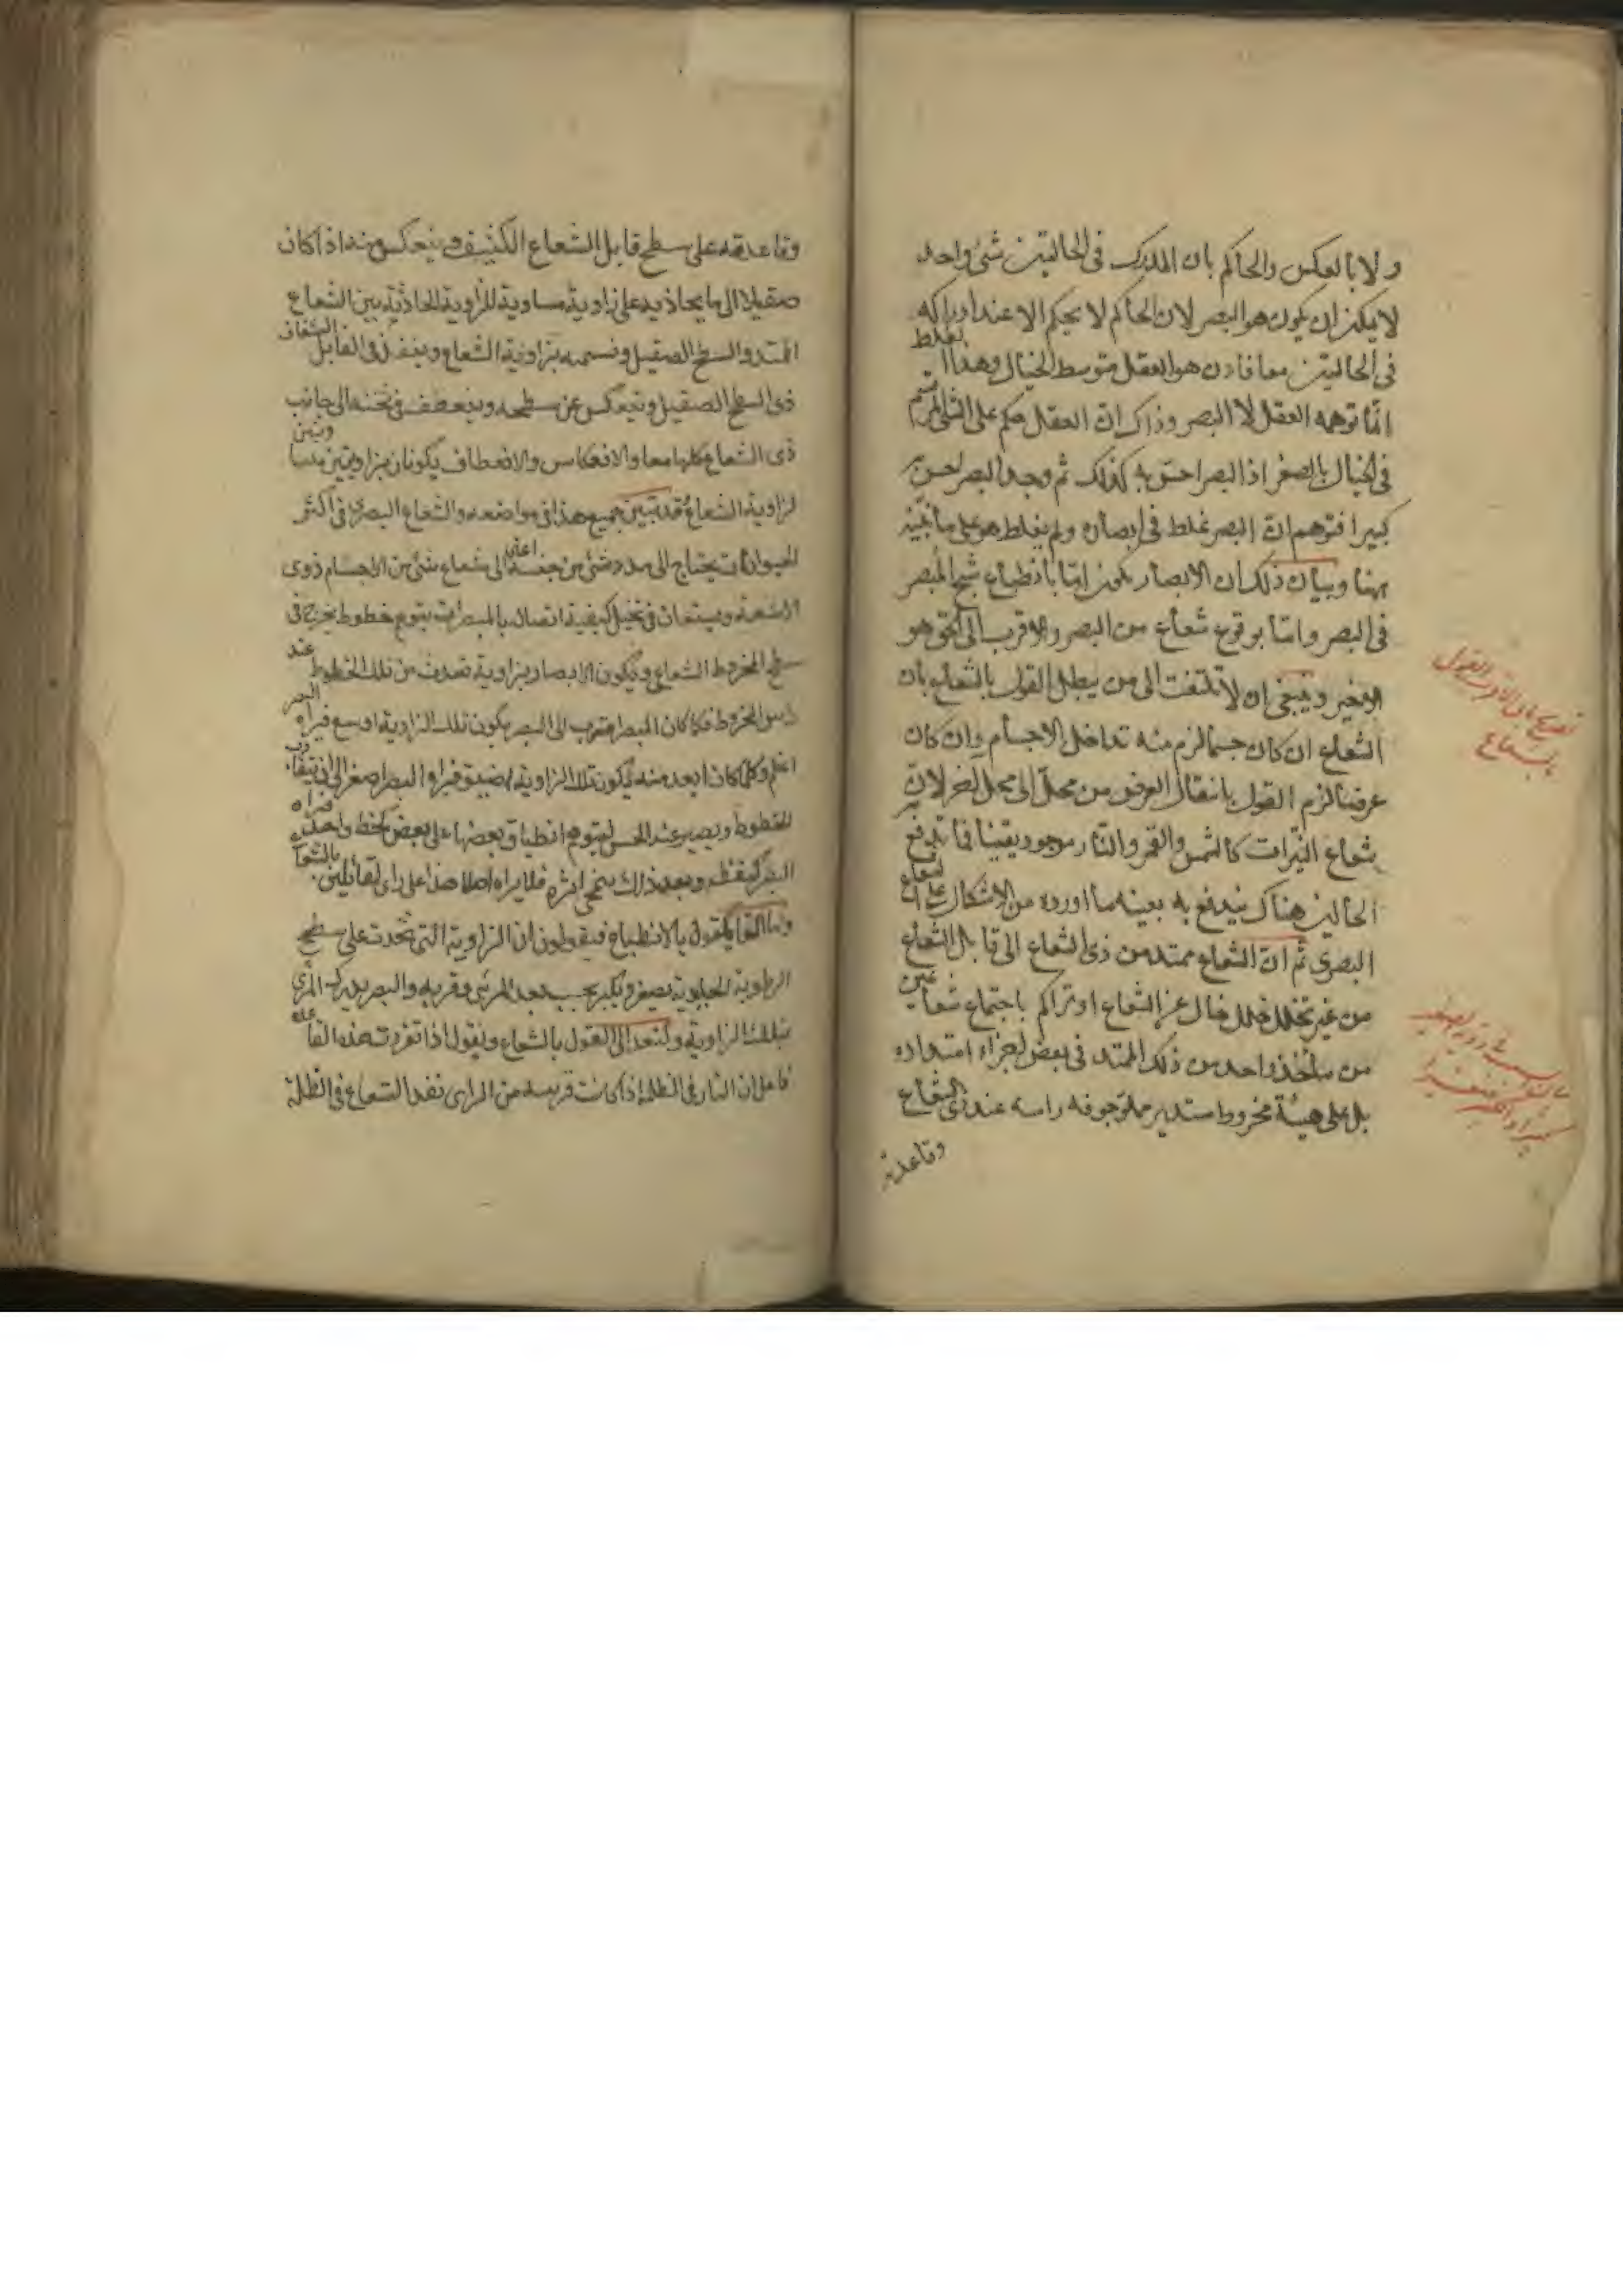 ولا بالعكس والحاكم بان المدرك فى الحالتين شئ واحد
لا يمكن ان يكون هو البصر لان الحاكم لا يحكم الا عند ادراكه
فى الحالتين معا فاذن هو العقل بتوسط الخيال وهذا الغلط
انما توهمه العقل لا البصر وذاك ان العقل حكم على الشئ المرتسم
فى الخيال بالصغر اذ البصر احس به كذلك ثم وجد البصر احس به
كبيرا فتوهم ان البصر غلط فى ابصاره ولم يغلط هو على ما نبينه
ههنا وبيان ذلك ان الابصار يكون اما بانطباع شبح المبصر
فى البصر واما بوقوع شعاع من البصر والاقرب الى الحق هو
الاخير وينبغى ان لا تلتفت الى من يبطل القول بالشعاع بان
الشعاع ان كان جسما لزم منه تداخل الاجسام وان كان
عرضا لزم القول بانتقال العرض من محل الى محل اخر لان
شعاع النيرات كالشمس والقمر والنار موجود يقينا فما يندفع به
الحالين هناك يندفع به بعينه ما اورده من الاشكال على الشعاع
البصرى ثم ان الشعاع ممتد من ذى الشعاع الى قابل الشعاع
من غير تخلل خلل خال عن الشعاع او تراكم باجتماع شعاعين
من مأخذ واحد من ذلك الممتد فى بعض اجزاء امتداده
بل على هيئة مخروط مستدير مملو جوفه راسه عند ذى الشعاع
وقاعدته
تصريح بان الاقرب القول
بالشعاع
وقاعدته على سطح قابل الشعاع الكثيف وينعكس منه اذا كان
صقيلا الى ما يحاذيه على زاوية مساوية للزاوية الحادثة بين الشعاع
الممتد والسطح الصقيل ونسميه بزاوية الشعاع وينفذ فى القابل الشفاف
ذى السطح الصقيل وينعكس عن سطحه وينعطف فى ثخنه الى جانب
ذى الشعاع كلها معا والانعكاس والانعطاف يكونان بزاويتين مساويتين
لزاوية الشعاع وقد تبين جميع هذا فى مواضعه والشعاع البصرى فى اكثر
الحيوانات يحتاج الى مدد شئ من جنسه اعنى الى شعاع شئ من الاجسام ذوى
الاشعة ويستعان فى تخيل كيفية اتصاله بالمبصرات بتوهم خطوط يخرج فى
سطح المخروط الشعاعى ويكون الابصار بزاوية تحدث من تلك الخطوط عند
راس المخروط فكلما كان المبصر اقرب الى البصر يكون تلك الزاوية اوسع فيراه البصر
اعظم وكلما كان ابعد منه يكون تلك الزاوية اضيق فيراه البصر اصغر الى ان يتقارب
الخطوط ويصير عند الحس لتوهم انطباق بعضها على بعض كخط واحد فيراه
البصر كنقطة وبعد ذلك ينمحى اثره فلا يراه اصلا هذا على راى القائلين بالشعاع
واما القائلون بالانطباع فيقولون ان الزاوية التى تحدث على سطح
الرطوبة الجليدية تصغر وتكبر بحسب بعد المرئى وقربه والبصر يدرك المرئى
بتلك الزاوية ولنعد الى القول بالشعاع ونقول اذا تقررت هذه القاعدة
فاعلم ان النار فى الظلمة اذا كانت قريبة من الرائى نفذ الشعاع فى الظلمة